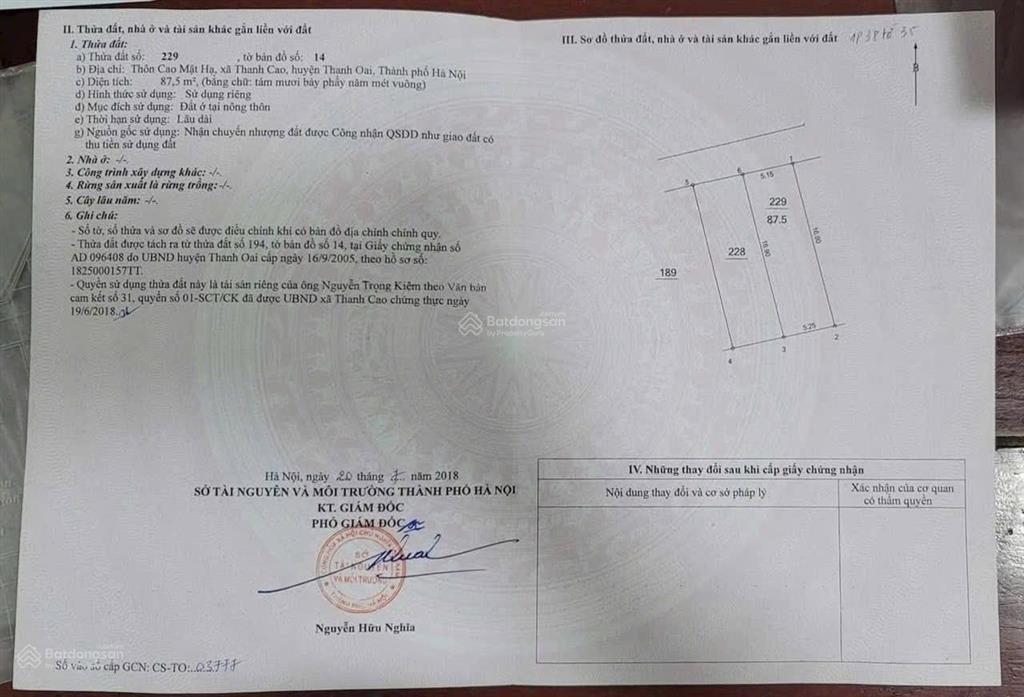 II. Thửa đất, nhà ở và tài sản khác gắn liền với đất
1. Thửa đất:
a) Thửa đất số: 229 , tờ bản đồ số: 14
b) Địa chỉ: Thôn Cao Mật Hạ, xã Thanh Cao, huyện Thanh Oai, Thành phố Hà Nội
c) Diện tích: 87,5 m², (bằng chữ: tám mươi bảy phẩy năm mét vuông)
d) Hình thức sử dụng: Sử dụng riêng
đ) Mục đích sử dụng: Đất ở tại nông thôn
e) Thời hạn sử dụng: Lâu dài
g) Nguồn gốc sử dụng: Nhận chuyển nhượng đất được Công nhận QSDĐ như giao đất có
thu tiền sử dụng đất
2. Nhà ở: -/-.
3. Công trình xây dựng khác: -/-.
4. Rừng sản xuất là rừng trồng: -/-.
5. Cây lâu năm: -/-.
6. Ghi chú:
- Số tờ, số thửa và sơ đồ sẽ được điều chỉnh khi có bản đồ địa chính chính quy.
- Thửa đất được tách ra từ thửa đất số 194, tờ bản đồ số 14, tại Giấy chứng nhận số
AD 096408 do UBND huyện Thanh Oai cấp ngày 16/9/2005, theo hồ sơ số:
1825000157TT.
- Quyền sử dụng thửa đất này là tài sản riêng của ông Nguyễn Trọng Kiệm theo Văn bản
cam kết số 31, quyển số 01-SCT/CK đã được UBND xã Thanh Cao chứng thực ngày
19/6/2018.
Hà Nội, ngày 20 tháng 7 năm 2018
SỞ TÀI NGUYÊN VÀ MÔI TRƯỜNG THÀNH PHỐ HÀ NỘI
KT. GIÁM ĐỐC
PHÓ GIÁM ĐỐC
SỞ
TÀI NGUYÊN
VÀ MÔI TRƯỜNG
THÀNH PHỐ HÀ NỘI
Nguyễn Hữu Nghĩa
Số vào sổ cấp GCN: CS-TO:..03777
III. Sơ đồ thửa đất, nhà ở và tài sản khác gắn liền với đất
B
5
6
5.15
1
229
87.5
228
16.90
16.90
189
5.25
4
3
2
IV. Những thay đổi sau khi cấp giấy chứng nhận
Nội dung thay đổi và cơ sở pháp lý
Xác nhận của cơ quan
có thẩm quyền
Batdongsan
by PropertyGuru
Batdongsan
by PropertyGuru